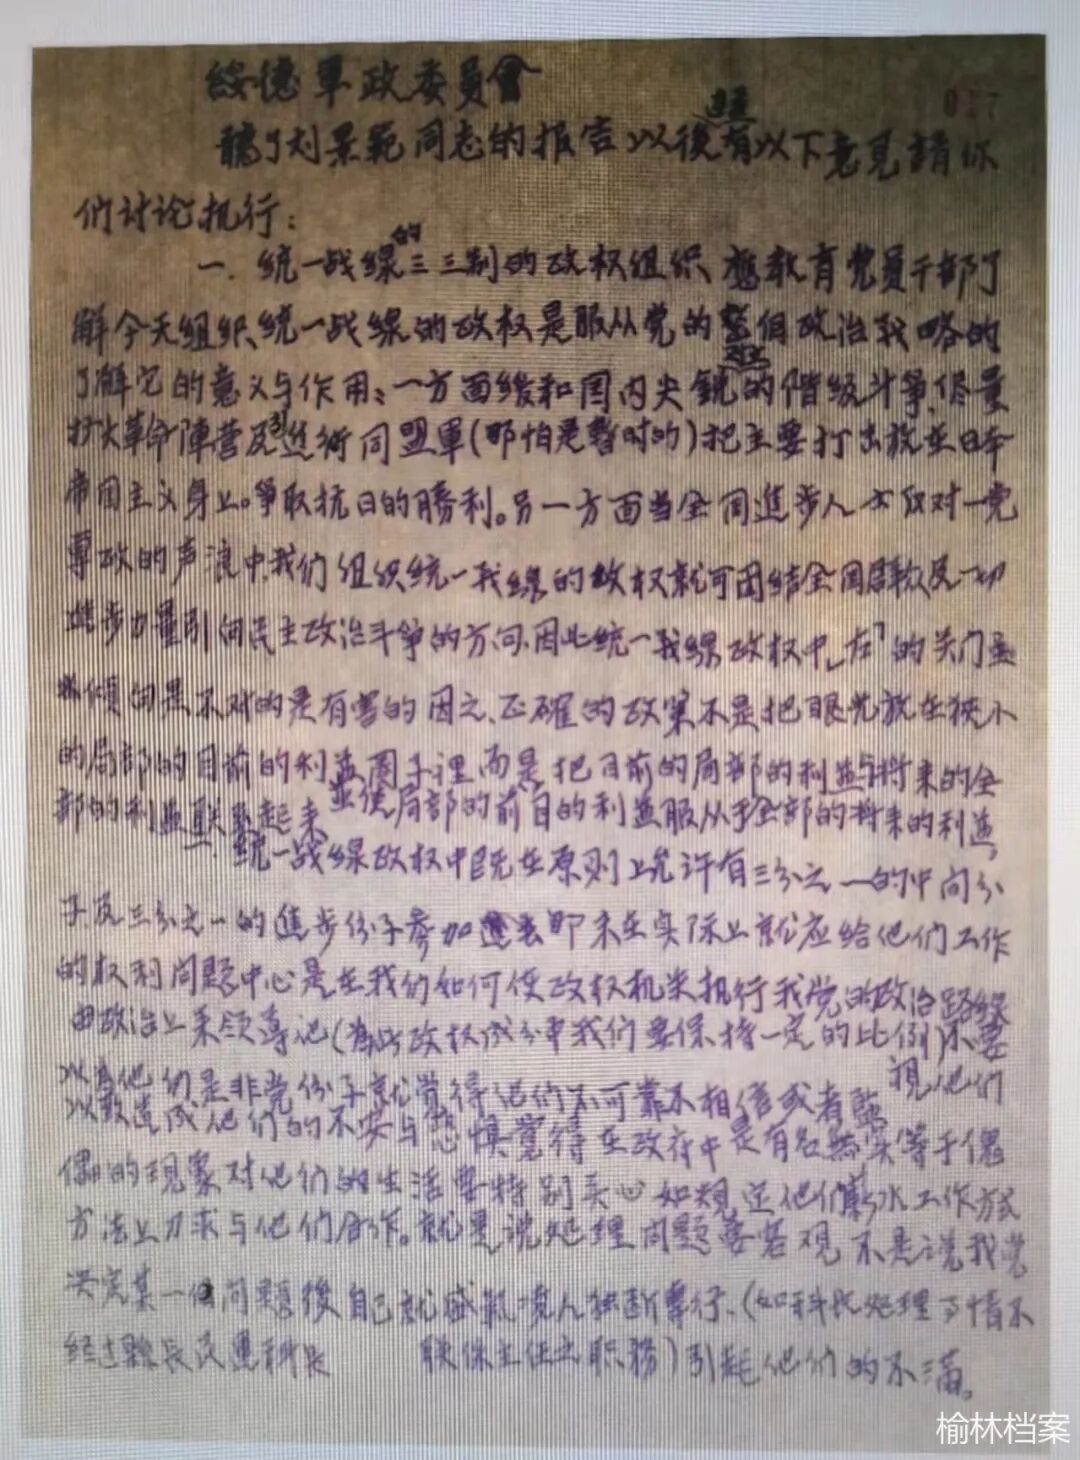 綏德軍政委員會
017
聽了刘景範同志的报告以後有以下意見請你
们讨论执行：
一．統一战線的三三制的政权组织、應教育党員干部了
解今天组织統一战線的政权是服从党的整個政治战略的
了解它的意义与作用：一方面缓和国内尖銳的階级斗争，儘量
扩大革命陣营及同盟軍(那怕是暫时的)把主要打击放在日本
帝国主义身上。争取抗日的勝利。另一方面当全国進步人士反对一党
專政的声浪中，我们组织統一战線的政权就可团结全国群众及一切
進步力量引向民主政治斗争的方向，因此統一战線政权中「左」的关门主
义傾向是不对的是有害的因之、正確的政策不是把眼光放在狭小
的局部的目前的利益圈子裡而是把目前的局部的利益与将来的全
部的利益联系起来並使局部的前目的利益服从于全部的将来的利益，
一．統一战線政权中既在原则上允许有三分之一的中间分
子及三分之一的進步份子参加進去那末在实际上就应给他们工作
的权利问題中心是在我们如何使政权机关执行我党的政治路线
由政治上来领導它(為此政权成分中我们要保持一定的比例)不要
以為他们是非党份子就覚得他们不可靠不相信或者監視他们
以致造成他们的不安与恐惧覚得在政府中是有名無实等于傀
儡的现象对他们的生活要特别关心如规定他们薪水工作方式
方法上力求与他们合作。就是说处理问題要客观不是说我党
决定某一個问題後自己就盛氣凌人独断專行、(如科长处理事情不
经过縣长民選科长 联保主任之职務)引起他们的不满。
榆林档案